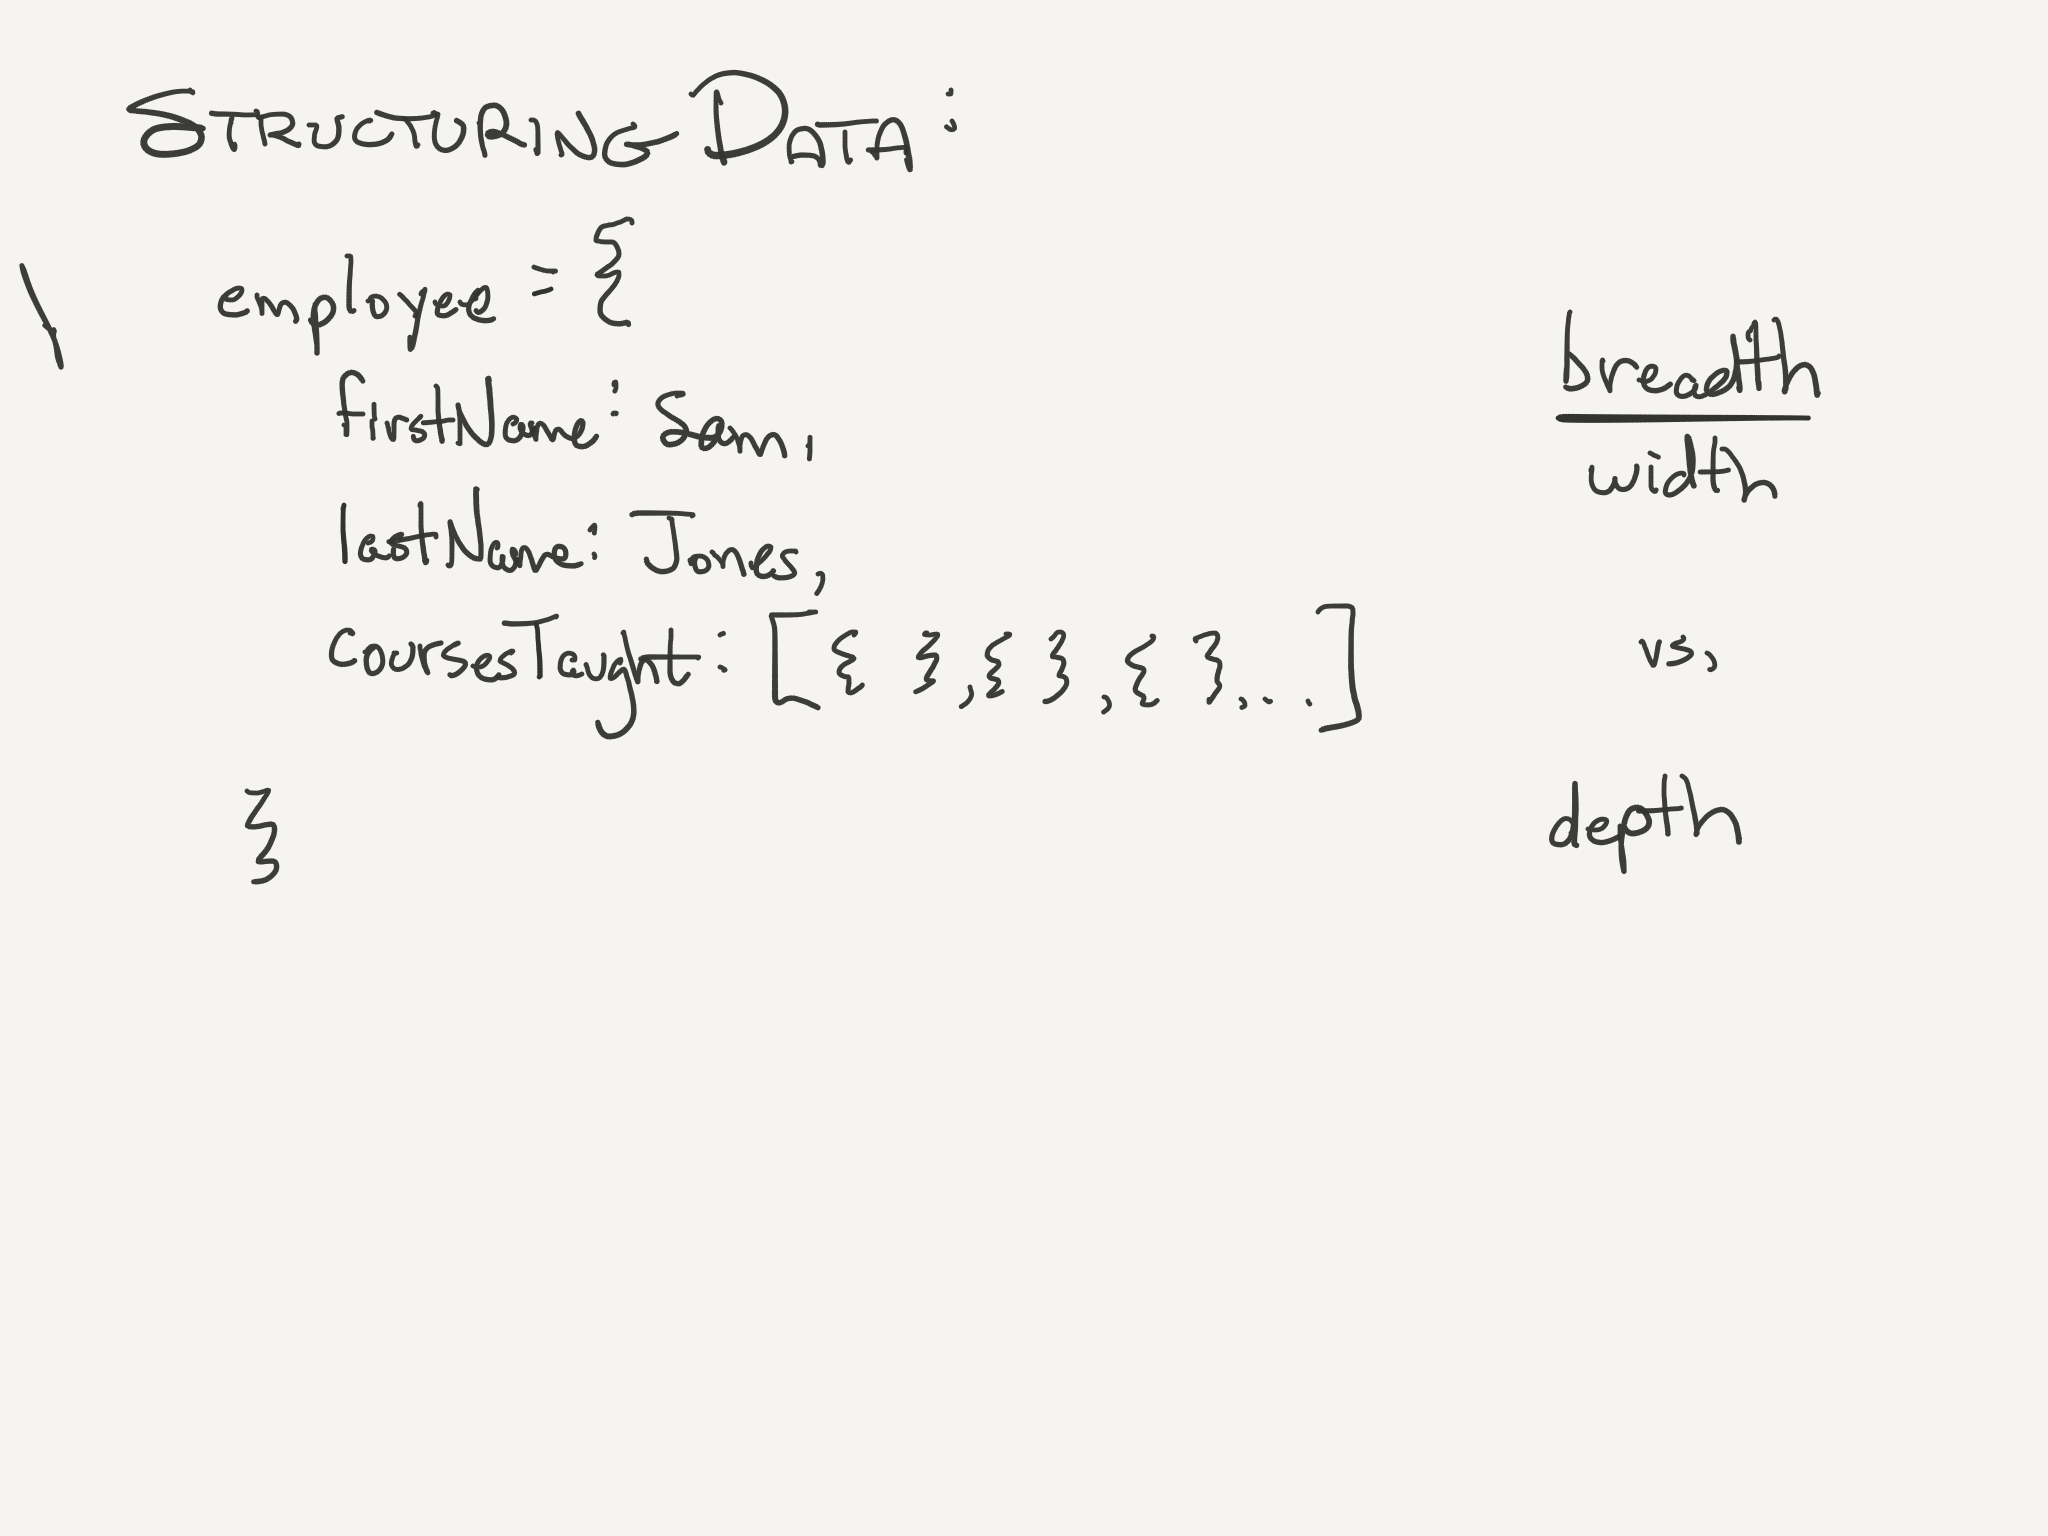 STRUCTURING DATA:
employee = {
firstName: Sam,
lastName: Jones,
coursesTaught: [{ },{ },{ },...]
}
breadth
width
vs.
depth